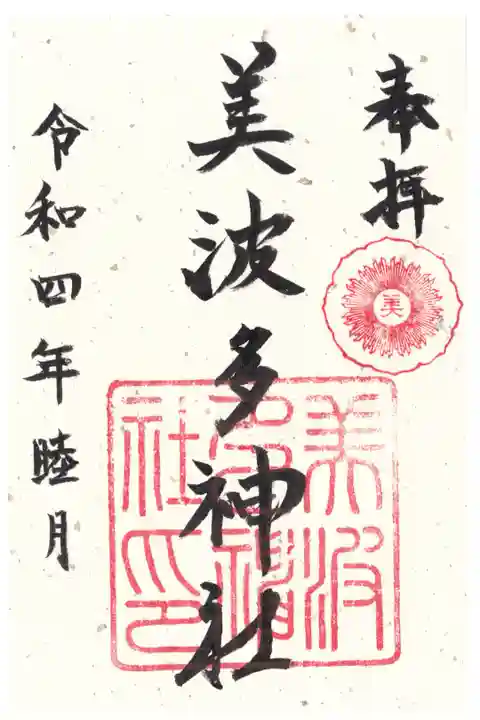 奉拝
美
美波多神社
美波
多神
社印
令和四年睦月